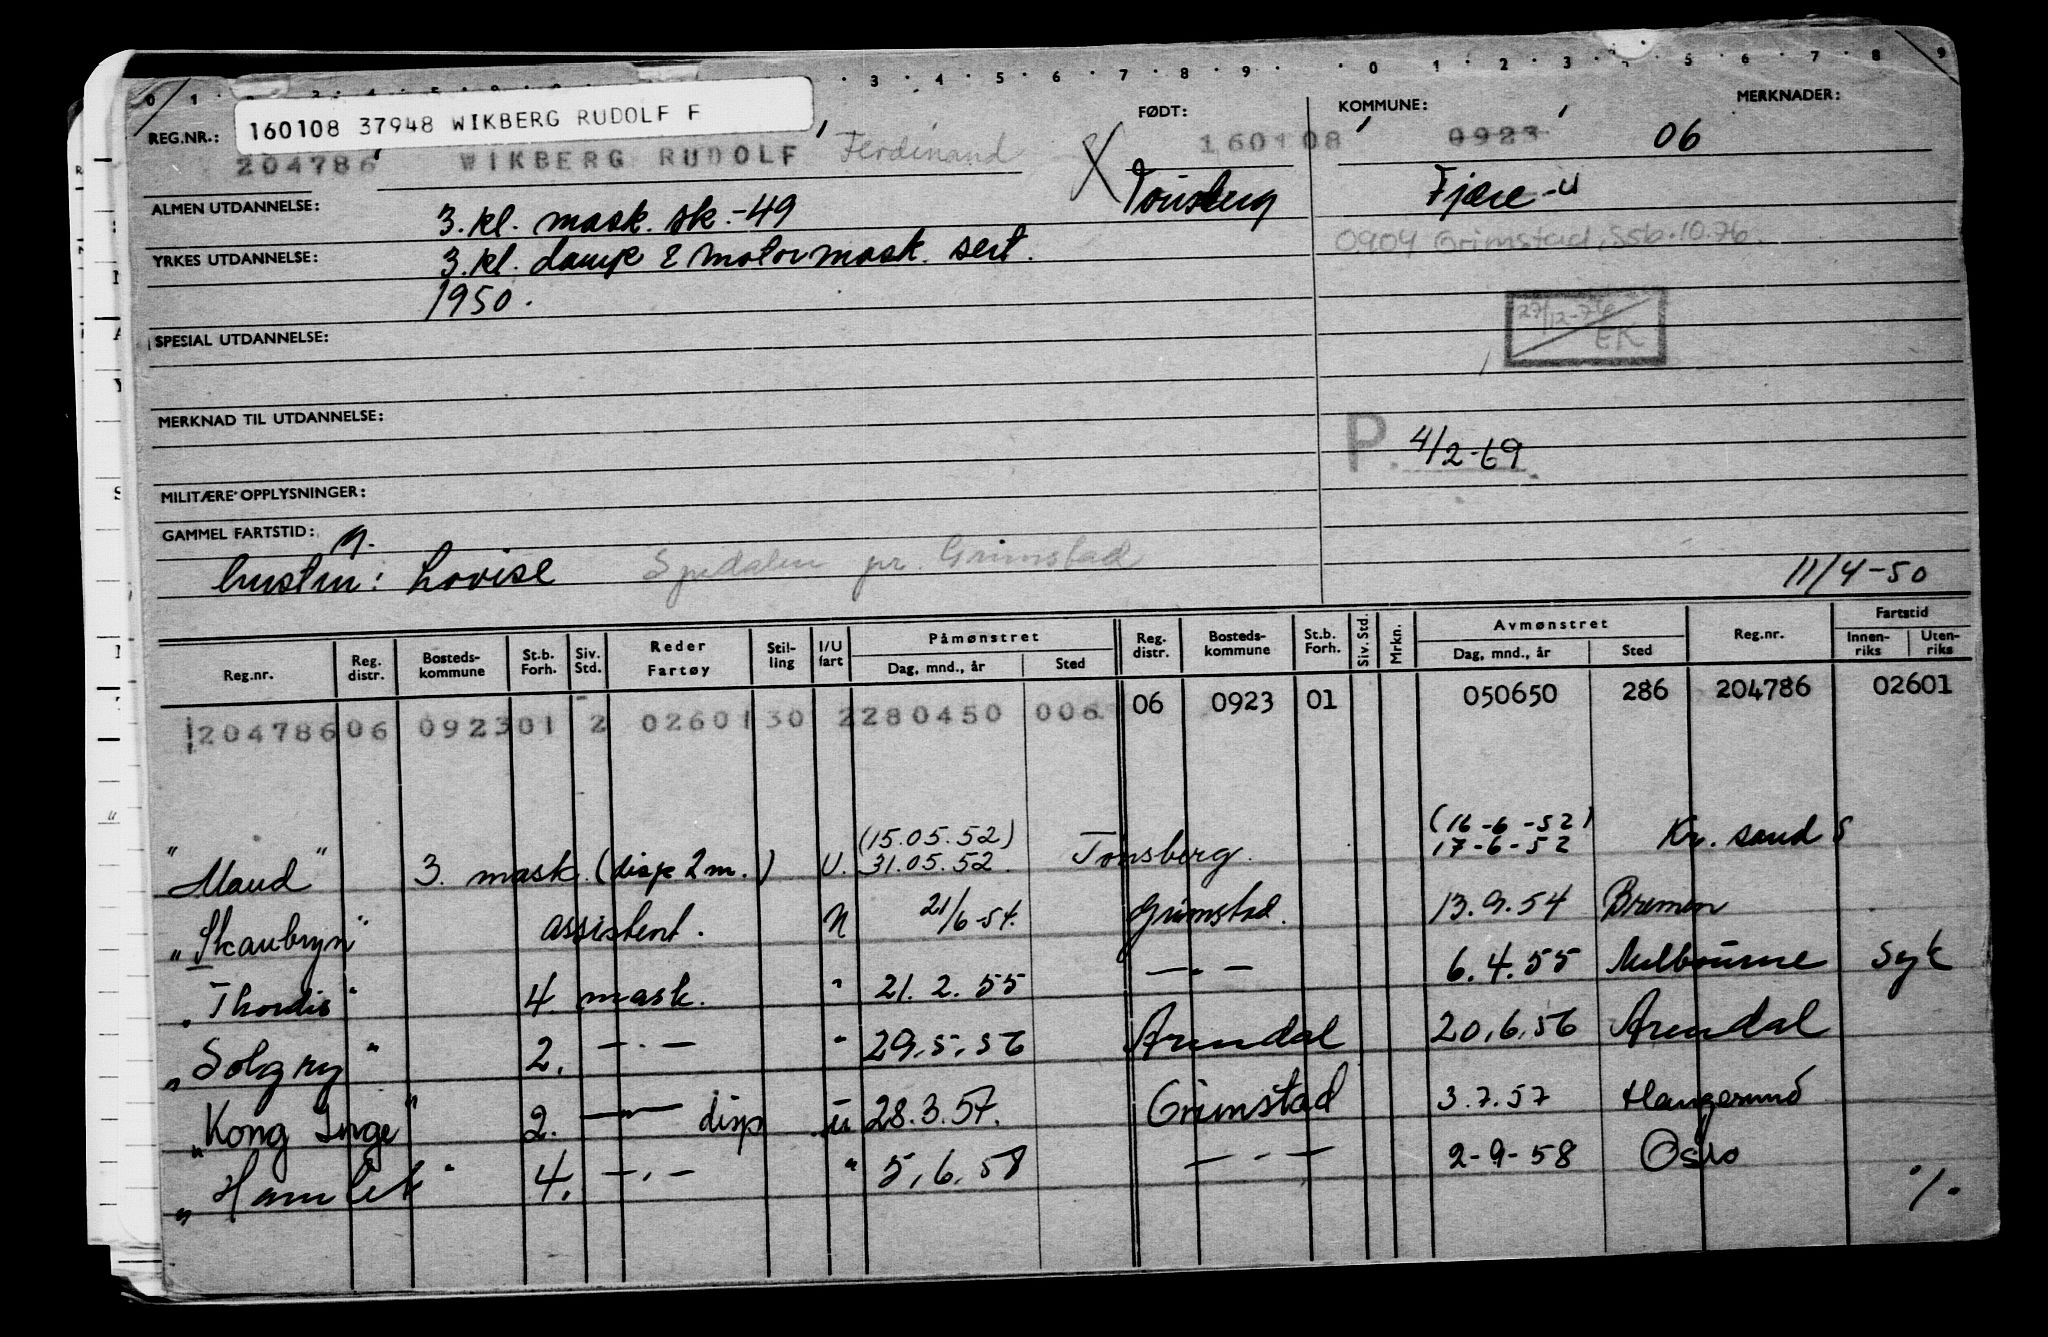 REG.NR.: 160108 37948 WIKBERG RUDOLF F FØDT: KOMMUNE: MERKNADER:
204786 WIKBERG RUDOLF Ferdinand 160108 0923 06
ALMEN UTDANNELSE: 3. kl. mask. sk. -49 Tønsberg Fjære -u
0904 Grimstad, Ssb. 10.76.
YRKES UTDANNELSE: 3. kl. damp & motormask. sert.
1950.
27/12-76 EK
SPESIAL UTDANNELSE:
MERKNAD TIL UTDANNELSE:
P. 4/2-69
MILITÆRE OPPLYSNINGER:
GAMMEL FARTSTID:
hustru: Lovise Spedalen pr. Grimstad 11/4-50
Reg.nr. Reg. distr. Bosteds-kommune St.b. Forh. Siv. Std. Reder Fartøy Stil-ling I/U fart Påmønstret Dag, mnd., år Sted Reg. distr. Bosteds-kommune St.b. Forh. Siv. Std. Mrkn. Avmønstret Dag, mnd., år Sted Reg.nr. Fartstid Innen-riks Uten-riks
204786 06 0923 01 2 02601 30 2 280450 006 06 0923 01 050650 286 204786 02601
(15.05.52) (16-6-52)
"Maud" 3. mask. (disp 2m.) U. 31.05.52. Tønsberg. 17-6-52 Kr. sand S
"Skaubryn" assistent. U 21/6-54. Grimstad. 13.9.54 Bremen
"Thordis" 4. mask. " 21.2.55 —.— 6.4.55 Melbourne syk
"Solgry" 2. —.— " 29.5.56 Arendal 20.6.56 Arendal
"Kong Inge" 2. —.— disp u 28.3.57. Grimstad 3.7.57 Haugesund
"Hamlet" 4. —.— " 5.6.58 —.— 2-9-58 Oslo
./.